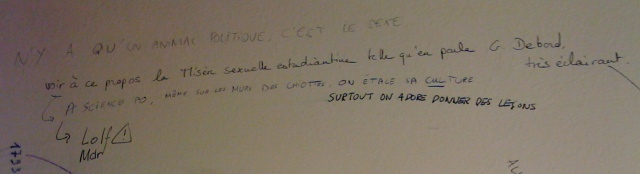 N'Y A QU'UN ANIMAL POLITIQUE, C'EST LE SEXE
voir à ce propos la Misère sexuelle estudiantine telle qu'en parle G. Debord,
très éclairant.
A SCIENCE PO, MÊME SUR LES MURS DES CHIOTTES, ON ÉTALE SA CULTURE
SURTOUT ON ADORE DONNER DES LEÇONS
Lolf
Mdr